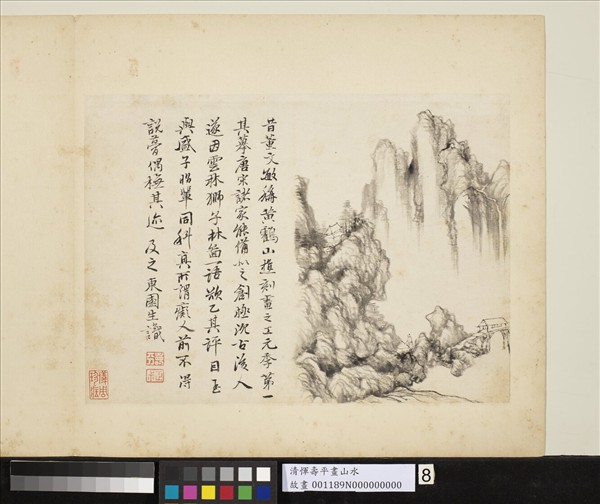 昔董文敏稱黃鶴山樵刻畫之工元季第一
其摹唐宋諸家能備以之創臆沈古後人
遂因雲林獅子林啚一語欲乙其評目至
與盛子昭輩同科真所謂癡人前不得
說夢偶橅其迹及之東園生識
清惲壽平畫山水
故畫 001189N000000000
8